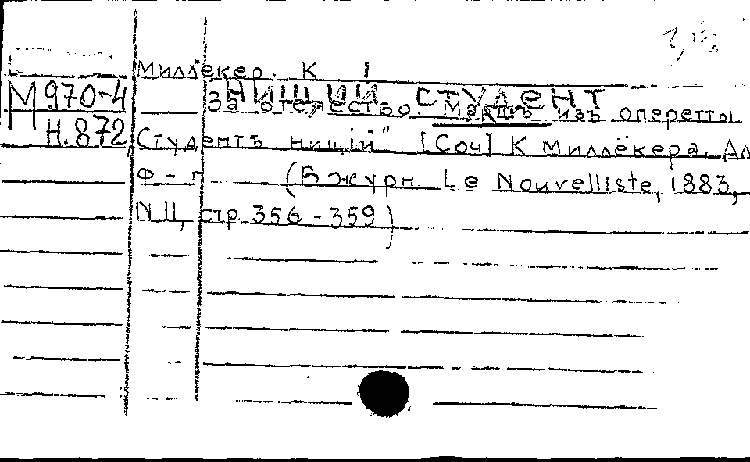 Миллёкер. К
НИЩИЙ СТУДЕНТ
М 970-4
За отечество. Маршъ изъ оперетты
Н.872
Студентъ нищій" [Соч] К Миллёкера. Дл
Ф-п (В журн. Le Nouvelliste, 1883,
N 11, стр 356-359)